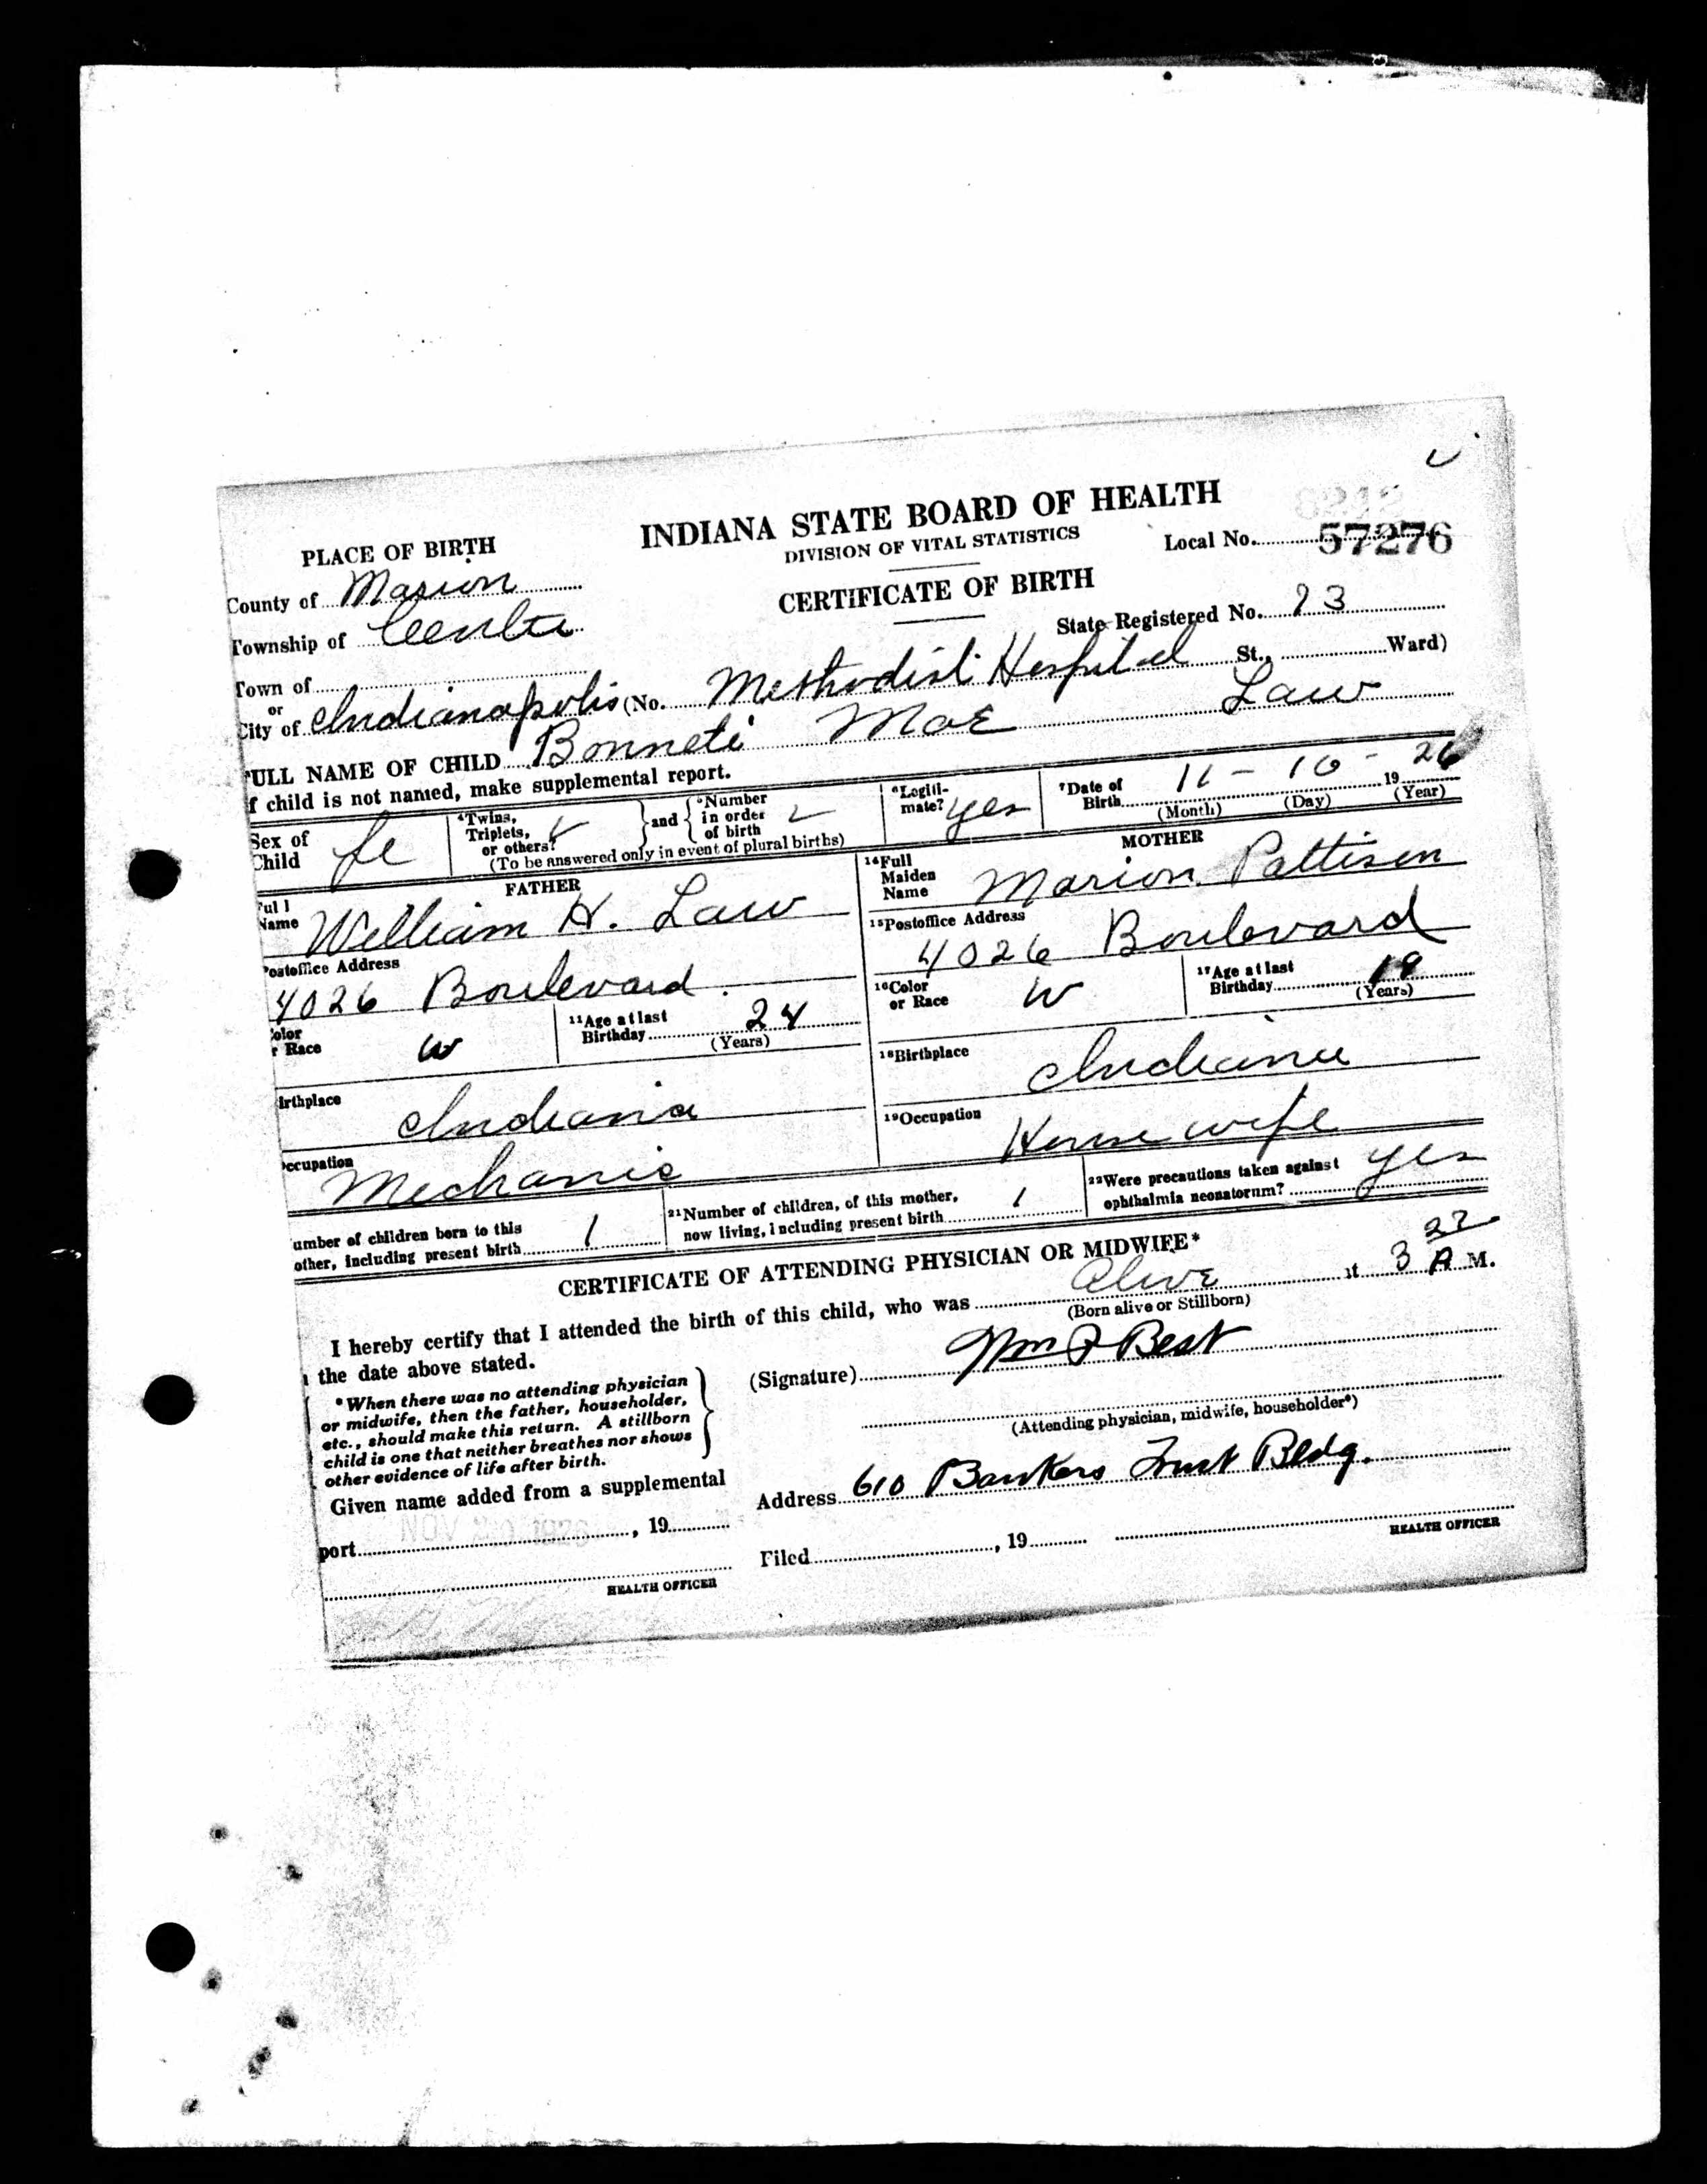 INDIANA STATE BOARD OF HEALTH
DIVISION OF VITAL STATISTICS
CERTIFICATE OF BIRTH
Local No. 57276
State Registered No. 23
PLACE OF BIRTH
County of Marion
Township of Center
Town of
or
City of Indianapolis (No. Methodist Hospital St., Ward)
FULL NAME OF CHILD Mae Law
If child is not named, make supplemental report.
Sex of Child fe
4Twins, Triplets, or others? and 5Number in order of birth
(To be answered only in event of plural births)
6Legiti-mate? yes
7Date of Birth 11 - 10 - 1926
(Month) (Day) (Year)
FATHER
Full Name William H. Law
Postoffice Address
4026 Boulevard.
Color or Race W
11Age at last Birthday 24
(Years)
Birthplace Indiana
Occupation Mechanic
MOTHER
14Full Maiden Name Marion Pattison
15Postoffice Address
4026 Boulevard
16Color or Race W
17Age at last Birthday 19
(Years)
18Birthplace Indiana
19Occupation House wife
umber of children born to this
other, including present birth 1
21Number of children, of this mother,
now living, including present birth 1
22Were precautions taken against
ophthalmia neonatorum? yes
CERTIFICATE OF ATTENDING PHYSICIAN OR MIDWIFE*
I hereby certify that I attended the birth of this child, who was Alive at 3 27 A M.
(Born alive or Stillborn)
the date above stated.
*When there was no attending physician
or midwife, then the father, householder,
etc., should make this return. A stillborn
child is one that neither breathes nor shows
other evidence of life after birth.
(Signature) Best
(Attending physician, midwife, householder*)
Given name added from a supplemental
port , 19
Address 610 Bankers Trust Bldg.
Filed , 19
HEALTH OFFICER
HEALTH OFFICER